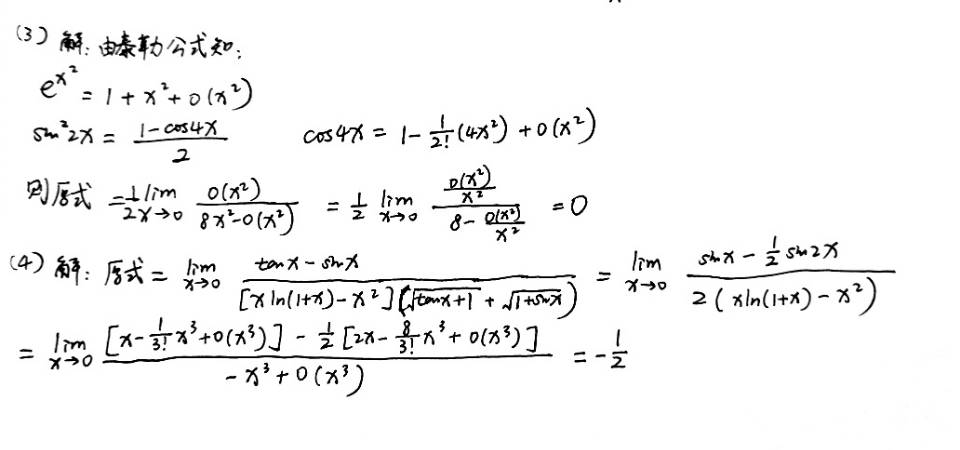 (3) 解: 由泰勒公式知:
e^{x^2} = 1 + x^2 + o(x^2)
sin^2 2x = \frac{1-cos4x}{2} cos4x = 1 - \frac{1}{2!}(4x^2) + o(x^2)
则原式 = \frac{1}{2} \lim_{x→0} \frac{o(x^2)}{8x^2-o(x^2)} = \frac{1}{2} \lim_{x→0} \frac{\frac{o(x^2)}{x^2}}{8-\frac{o(x^2)}{x^2}} = 0
(4) 解: 原式 = \lim_{x→0} \frac{tanx-sinx}{[xln(1+x)-x^2](\sqrt{tanx+1}+\sqrt{1+sinx})} = \lim_{x→0} \frac{sinx-\frac{1}{2}sin2x}{2(xln(1+x)-x^2)}
= \lim_{x→0} \frac{[x-\frac{1}{3!}x^3+o(x^3)]-\frac{1}{2}[2x-\frac{8}{3!}x^3+o(x^3)]}{-x^3+o(x^3)} = -\frac{1}{2}